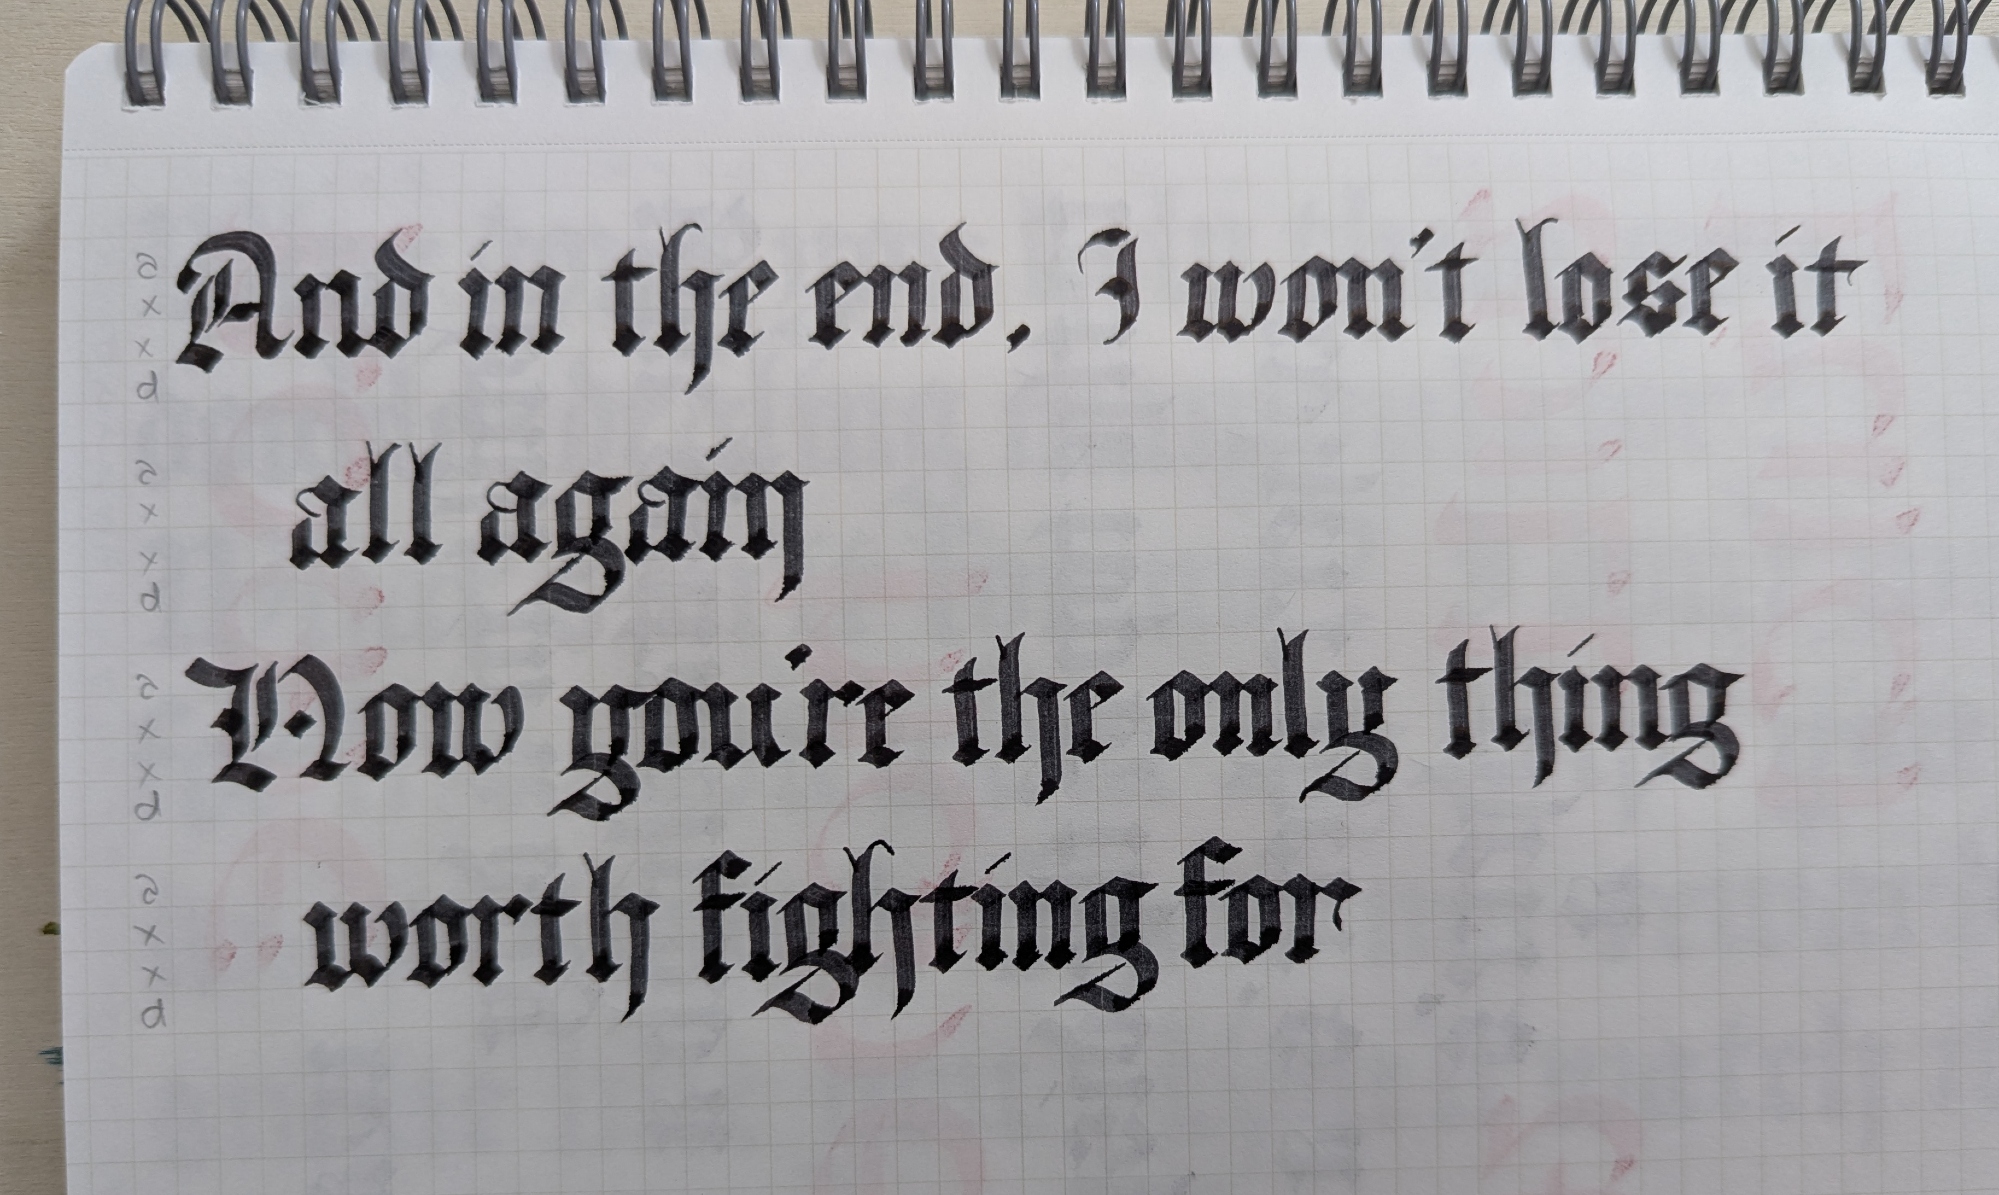 And in the end, I won't lose it
all again
Now you're the only thing
worth fighting for
a
x
x
d
a
x
x
d
a
x
x
d
a
x
x
d